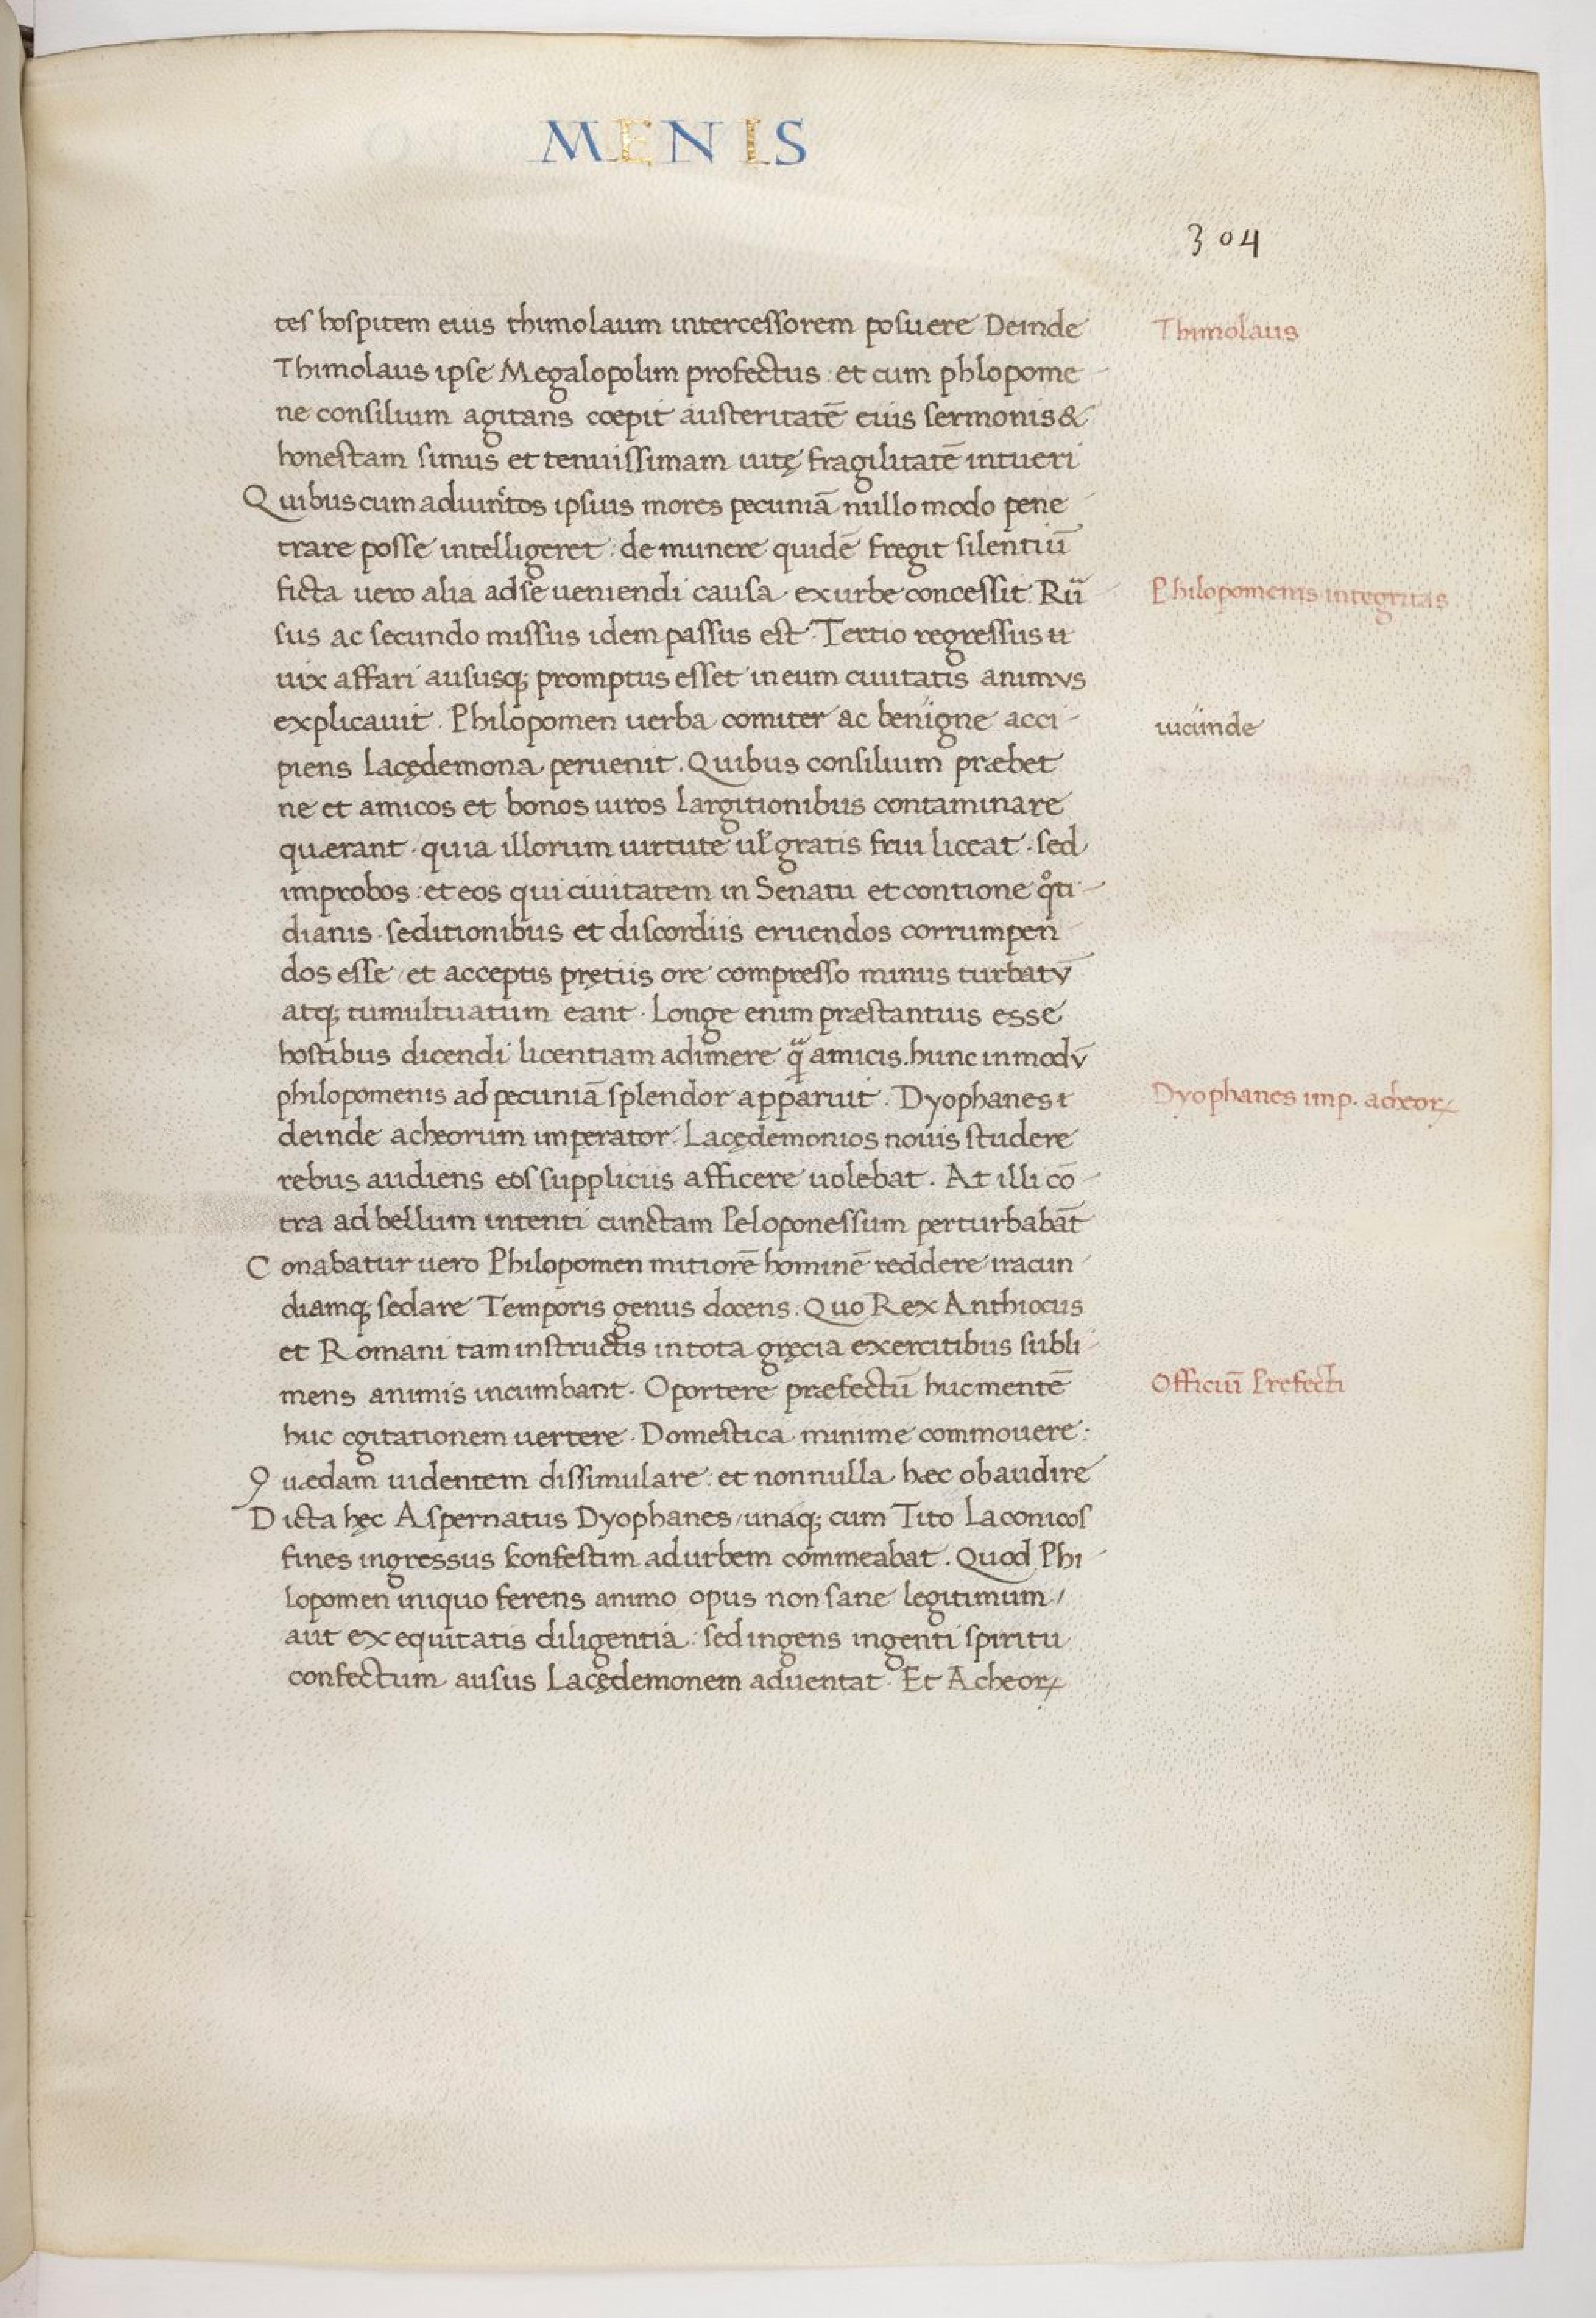 MENIS
304
tes hospitem eius thimolaum intercessorem posuere Deinde
Thimolaus
Thimolaus ipse Megalopolim profectus: et cum phlopome
ne consilium agitans coepit austeritatē eius sermonis &
honestam simus et tenuissimam uitę fragilitatē intueri
Quibus cum ipsius mores pecuniā nullo modo pene
trare posse intelligeret: de munere quidē fregit silentiū
ficta uero alia ad se ueniendi causa ex urbe concessit. Rū
Philopomenis integritas
sus ac secundo missus idem passus est. Tertio regressus ū
uix affari aususq; promptus esset in eum ciuitatis animus
explicauit. Philopomen uerba comiter ac benigne acci
iucunde
piens Lacędemona peruenit. Quibus consilium præbet
ne et amicos et bonos uiros largitionibus contaminare
quærant. quia illorum uirtute ul' gratis frui liceat. sed
improbos: et eos qui ciuitatem in Senatu et contione qͦti
dianis seditionibus et discordiis eruendos corrumpen
dos esse et acceptis pretiis ore compresso minus turbatū
atq; tumultuatum eant. Longe enim præstantius esse
hostibus dicendi licentiam adimere q̃ amicis. hunc in modū
philopomenis ad pecuniā splendor apparuit. Dyophanes
Dyophanes imp. acheoꝝ
deinde acheorum imperator Lacędemonios nouis studere
rebus audiens eos suppliciis afficere uolebat. At illi cō
tra ad bellum intenti cunctam Peloponessum perturbabāt
Conabatur uero Philopomen mitiorē hominē reddere iracun
diamq; sedare Temporis genus docens. Quo Rex Anthiocus
et Romani tam instructis in tota gręcia exercitibus subli
mens animis incumbant. Oportere præfectū huc mentē
Officiū Prefecti
huc cgitationem uertere. Domestica minime commouere:
Quædam uidentem dissimulare: et nonnulla hæc obaudire
Dicta hęc Aspernatus Dyophanes/ unaq; cum Tito Laconicos
fines ingressus confestim ad urbem commeabat. Quod Phi
lopomen iniquo ferens animo opus non sane legitimum/
aut ex equitatis diligentia: sed ingens ingenti spiritu
confectum ausus Lacędemonem aduentat. Et Acheoꝝ